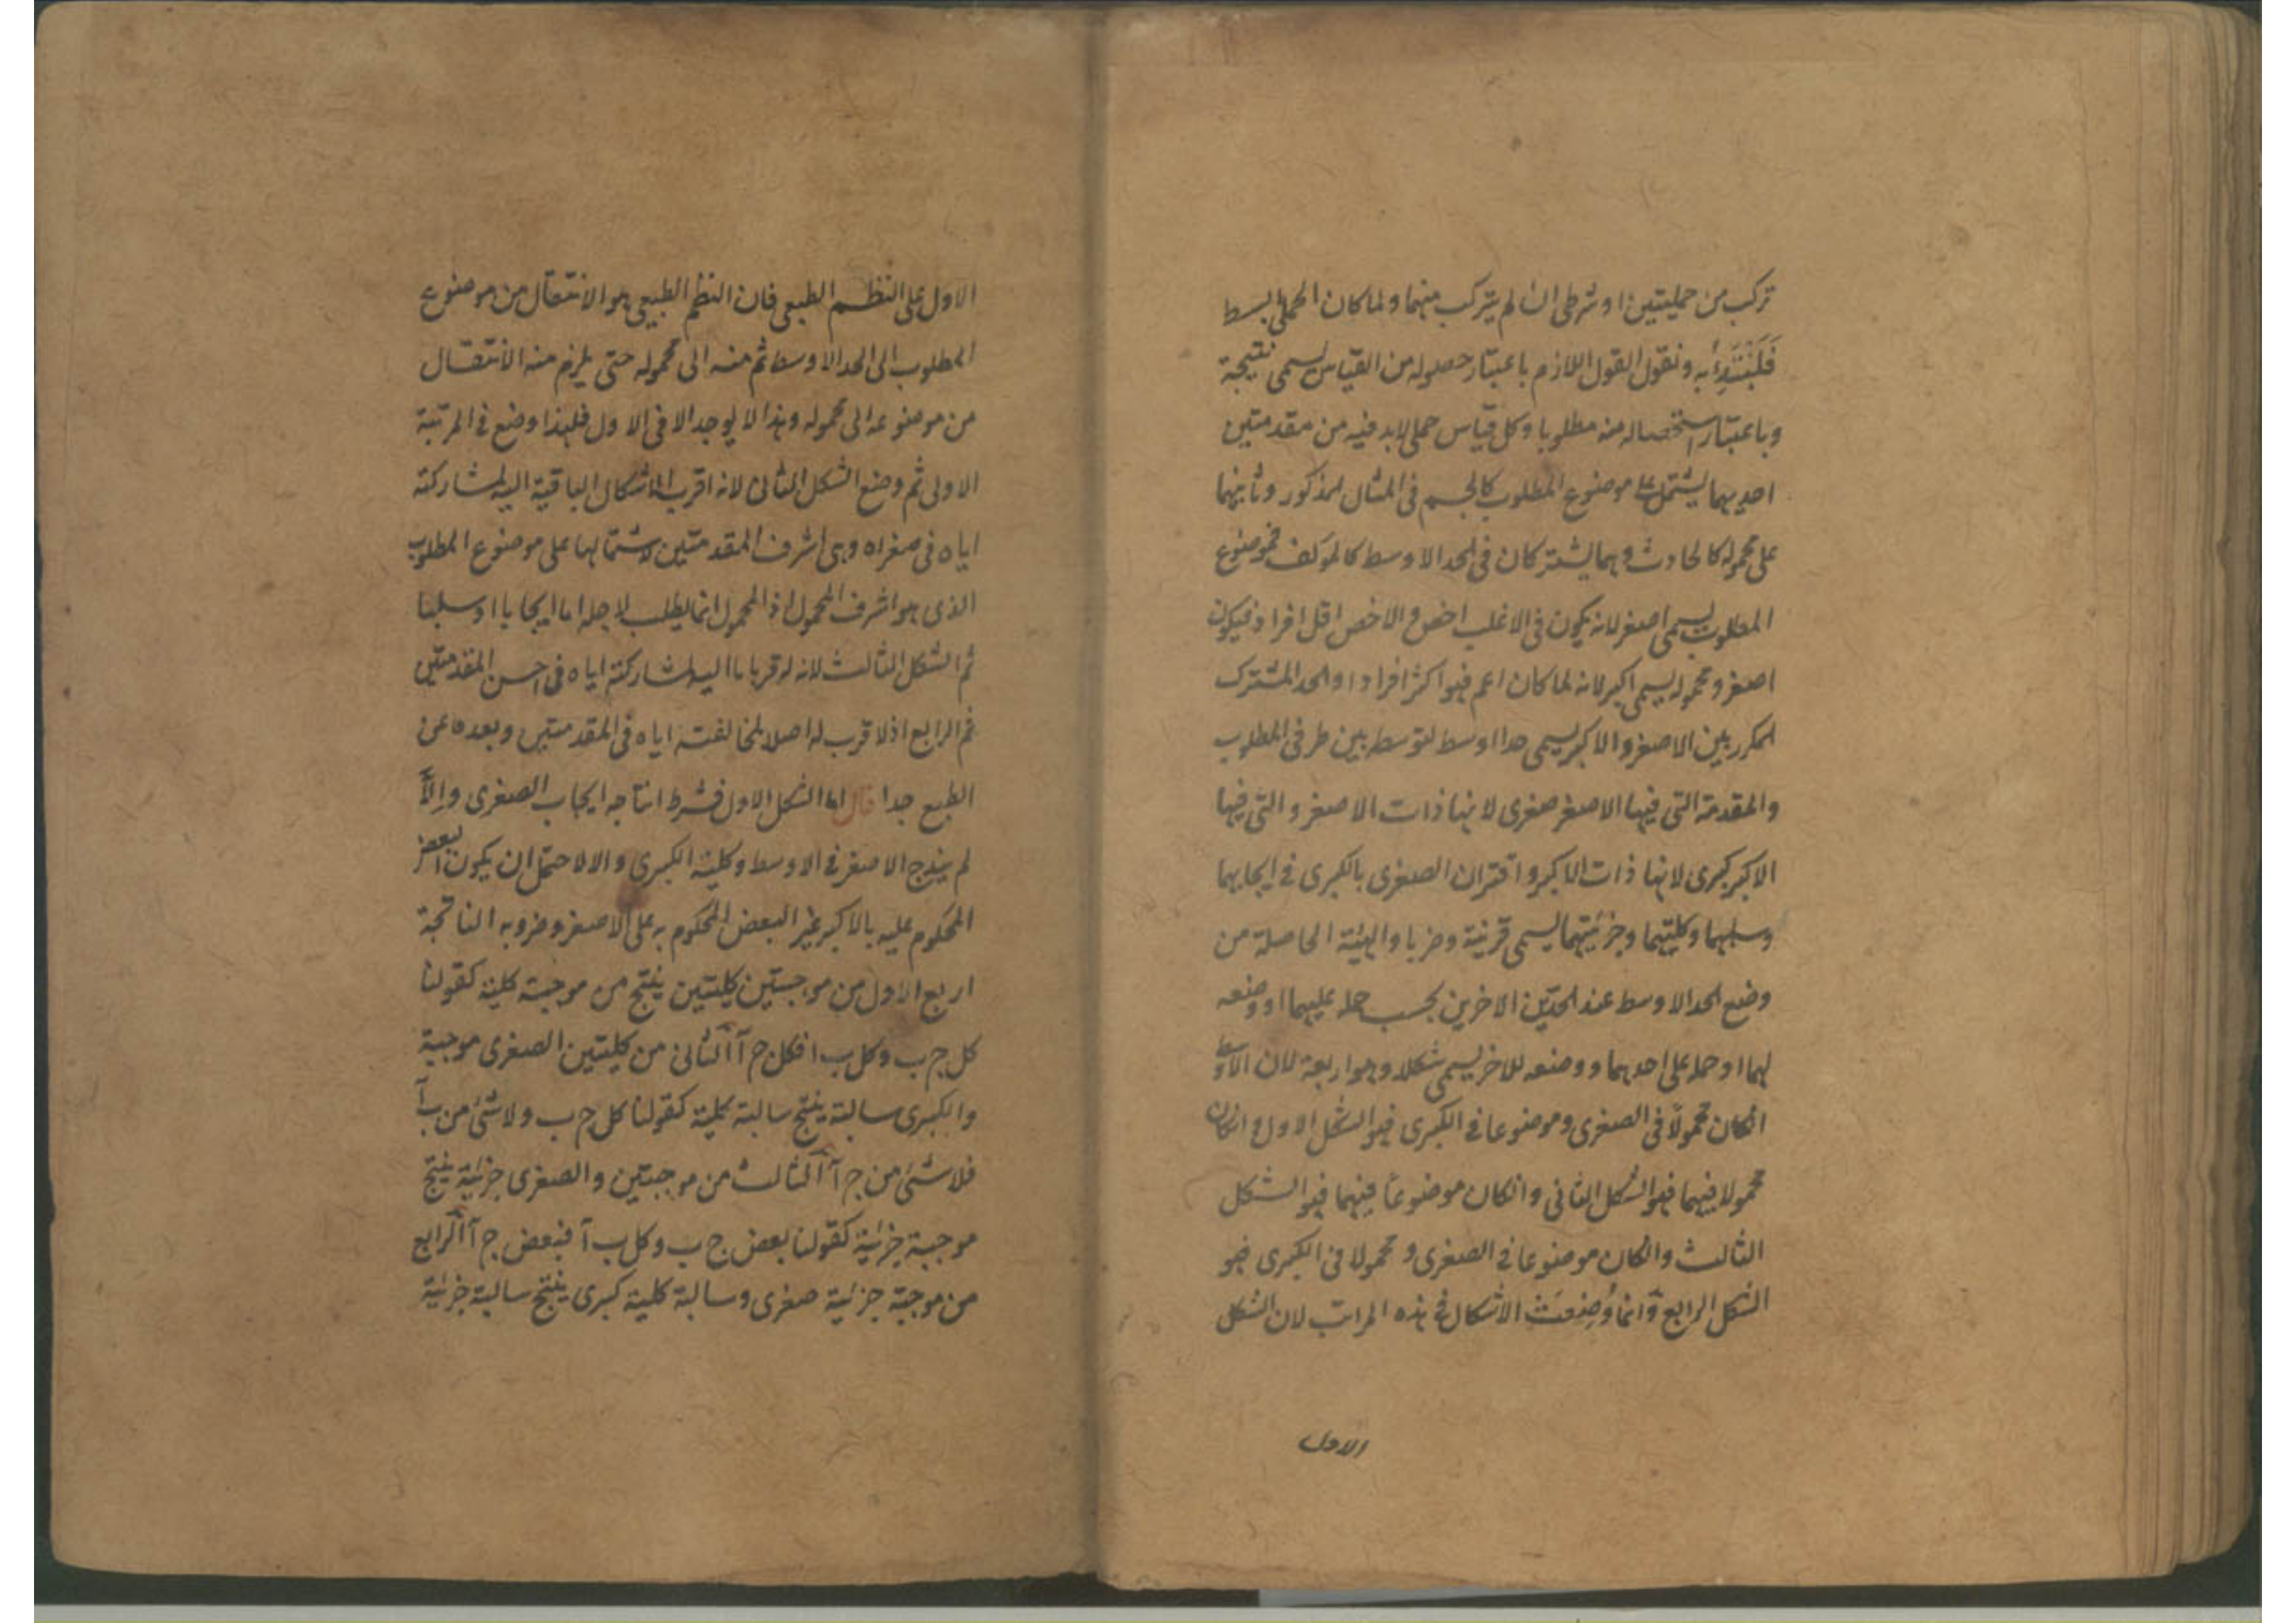 تركب من حمليتين او شرطى ان لم يتركب منهما ولما كان الحملى ابسط
فَلْنَبْتَدِأْ به ونقول القول اللازم باعتبار حصوله من القياس يسمى نتيجة
وباعتبار استحصاله منه مطلوبا وكل قياس حملى لابد فيه من مقدمتين
احديهما يشتمل على موضوع المطلوب كالجسم فى المثال المذكور وثانيهما
على محموله كالحادث وهما يشتركان فى الحد الاوسط كالمؤلف فموضوع
المطلوب يسمى اصغر لانه يكون فى الاغلب اخص والاخص اقل افرادا فيكون
اصغر ومحموله يسمى اكبر لانه لما كان اعم فهو اكثر افرادا والحد المشترك
المكرر بين الاصغر والاكبر يسمى حدا اوسط لتوسطه بين طرفى المطلوب
والمقدمة التى فيها الاصغر صغرى لانها ذات الاصغر والتى فيها
الاكبر كبرى لانها ذات الاكبر واقتران الصغرى بالكبرى فى ايجابهما
وسلبهما وكليتهما وجزئيتهما يسمى قرينة وضربا والهيئة الحاصلة من
وضع الحد الاوسط عند الحدين الاخرين بحسب حمله عليهما او وضعه
لهما او حمله على احدهما ووضعه للاخر يسمى شكلا وهو اربعة لان الاوسط
انكان محمولًا فى الصغرى وموضوعا فى الكبرى فهو الشكل الاول وانكان
محمولا فيهما فهو الشكل الثانى وانكان موضوعًا فيهما فهو الشكل
الثالث وانكان موضوعا فى الصغرى ومحمولا فى الكبرى فهو
الشكل الرابع وانما وُضِعَتْ الاشكال فى هذه المراتب لان الشكل
الاول
الاول على النظم الطبعى فان النظم الطبيعى هو الانتقال من موضوع
المطلوب الى الحد الاوسط ثم منه الى محموله حتى يلزم منه الانتقال
من موضوعه الى محموله وهذا لا يوجد الا فى الاول فلهذا وضع فى المرتبة
الاولى ثم وضع الشكل الثانى لانه اقرب الاشكال الباقية اليه لمشاركته
اياه فى صغراه وهى اشرف المقدمتين لاشتمالها على موضوع المطلوب
الذى هو اشرف المحمول اذ المحمول انما يطلب لاجله اما ايجابا او سلبا
ثم الشكل الثالث لانه له قربا ما اليه لمشاركته اياه فى اخس المقدمتين
ثم الرابع اذ لا قرب له اصلا لمخالفته اياه فى المقدمتين وبعده عن
الطبع جدا قال اما الشكل الاول فشرط انتاجه ايجاب الصغرى وإلَّا
لم يندرج الاصغر فى الاوسط وكلية الكبرى والا لاحتمل ان يكون البعض
المحكوم عليه بالاكبر غير البعض المحكوم به على الاصغر وضروبه الناتجة
اربع الاول من موجبتين كليتين ينتج من موجبة كلية كقولنا
كل ج ب وكل ب ا فكل ج آ الثانى من كليتين الصغرى موجبة
والكبرى سالبة ينتج سالبة كلية كقولنا كل ج ب ولا شئ من ب آ
فلا شئ من ج آ الثالث من موجبتين والصغرى جزئية ينتج
موجبة جزئية كقولنا بعض ج ب وكل ب آ فبعض ج آ الرابع
من موجبة جزئية صغرى وسالبة كلية كبرى ينتج سالبة جزئية